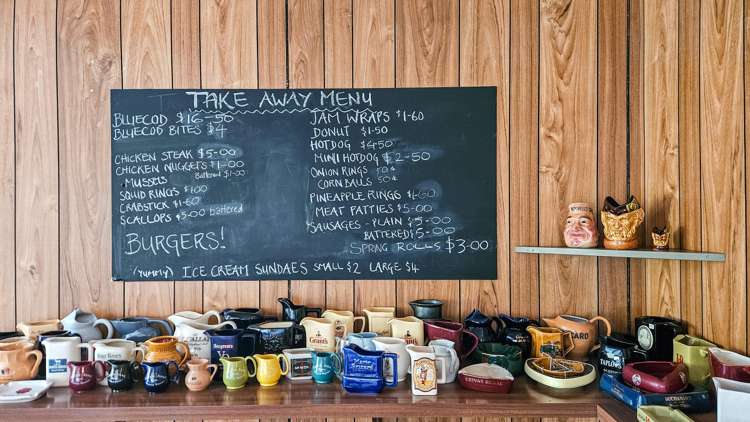 TAKE AWAY MENU
BLUECOD $16-50
BLUECOD BITES $4
CHICKEN STEAK $5-00
CHICKEN NUGGETS $1-00
MUSSELS Battered $1-00
SQUID RINGS $1-00
CRABSTICK $1-60
SCALLOPS $5-00 battered
BURGERS!
JAM WRAPS $1-60
DONUT $1-50
HOTDOG $4-50
MINI HOTDOG $2-50
ONION RINGS 50¢
CORN BALLS 50¢
PINEAPPLE RINGS $1-60
MEAT PATTIES $5-00
SAUSAGES - PLAIN $5-00
BATTERED $5-00
SPRING ROLLS $3-00
(YUMMY) ICE CREAM SUNDAES SMALL $2 LARGE $4
Grant's
CHIVAS REGAL